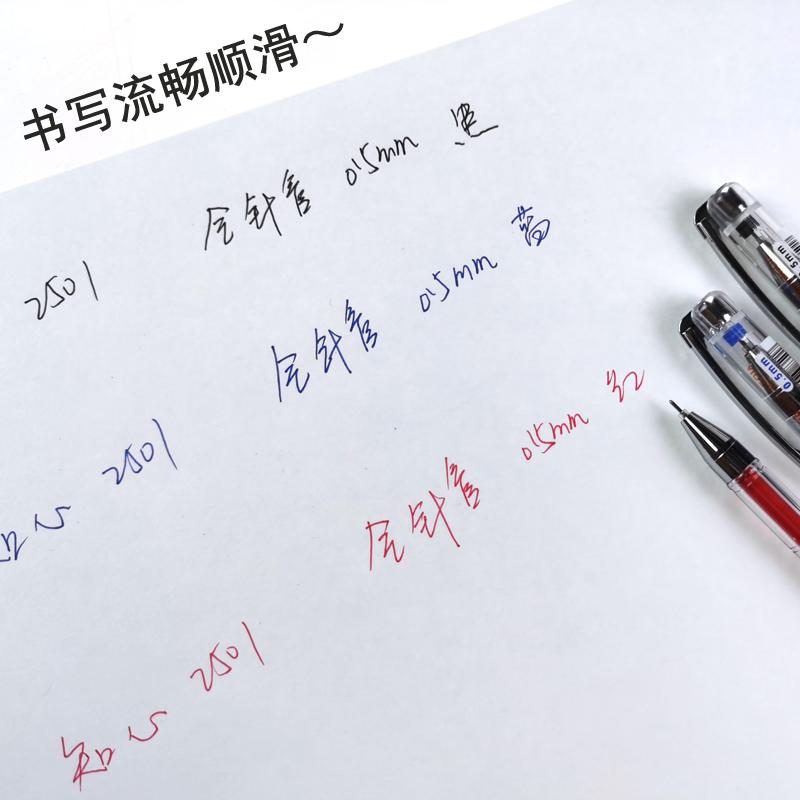 书写流畅顺滑～
2501 全针管 0.5mm 黑
知心 2501 全针管 0.5mm 蓝
知心 2501 全针管 0.5mm 红
5mm
0.5mm